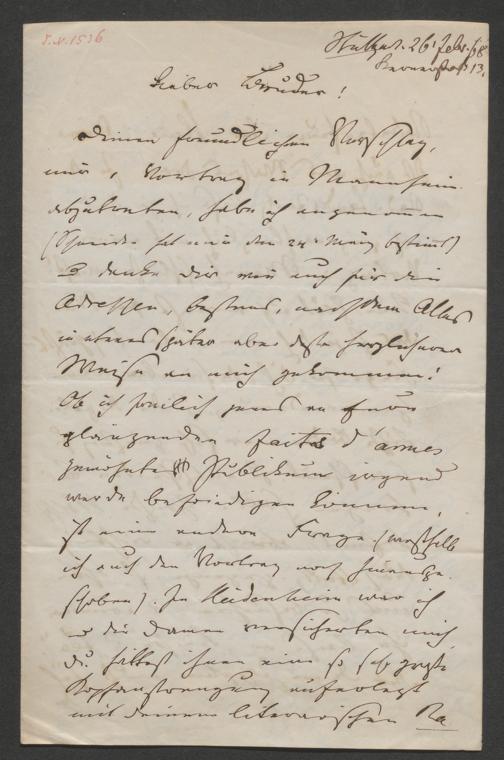 I.N. 1536
Stuttgart. 26. Febr. 68
Kernerstraße 13.
Lieber Bruder!
Deinen freundlichen Vorschlag,
mir, Vortrag in Mannheim
abzutreten, habe ich angenommen
( hat mir den 24. März bestimmt)
u danke dir wie auch für die
Adressen, bestens, nachdem Alles
in etwas später aber desto herzlicherer
Weise an mich gekommen!
Ob ich freilich jenes an Eure
glänzenden faits d'armes
gewöhnte Publikum irgend
werde befriedigen können,
ist eine andere Frage. (weßhalb
ich auch den Vortrag noch
schoben). In Heidenheim war ich
u die Damen versicherten mich,
du hättest ihnen eine so sehr große
Kopfanstrengung auferlegt
mit deinem literarischen Ra